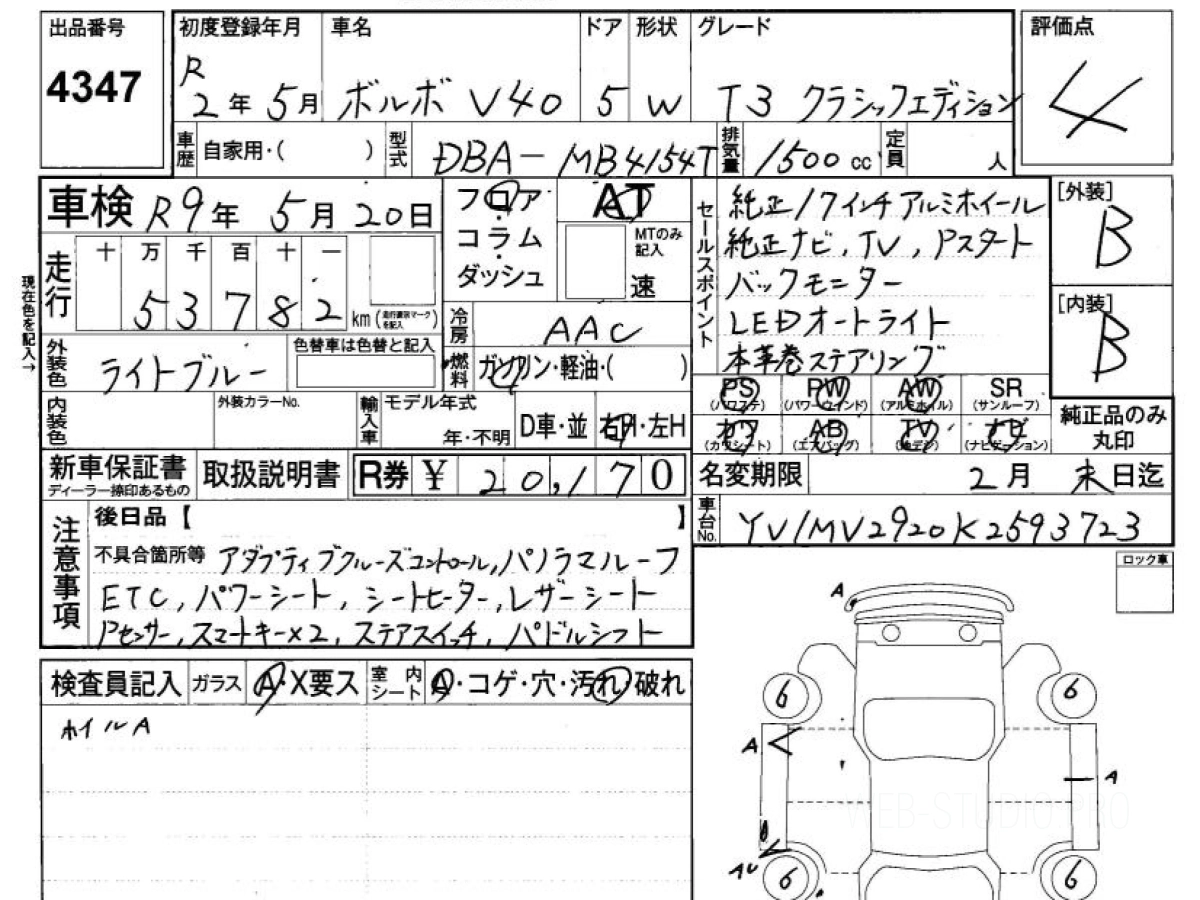 出品番号 初度登録年月 車名 ドア 形状 グレード 評価点
4347 R 2年 5月 ボルボ V40 5 W T3 クラシックエディション 4
車歴 自家用・( ) 型式 DBA-MB4154T 排気量 1500cc 定員 人
車検 R9年 5月 20日 フロア AT セールスポイント 純正17インチアルミホイール [外装]
コラム MTのみ記入 純正ナビ, TV, Pスタート B
現在色を記入→ 走行 十 万 千 百 十 一 ダッシュ 速 バックモニター
53782 km (走行表示マークを記入) 冷房 AAC LEDオートライト [内装]
外装色 ライトブルー 色替車は色替と記入 燃料 ガソリン・軽油・( ) 本革巻ステアリング B
PS (パワステ) PW (パワーウインド) AW (アルミホイル) SR (サンルーフ)
内装色 外装カラーNo. 輸入車 モデル年式 年・不明 D車・並 右H・左H カワ (カワシート) AB (エアバッグ) TV (地デジ) ナビ (ナビゲーション) 純正品のみ丸印
新車保証書 ディーラー捺印あるもの 取扱説明書 R券 ¥ 20,170 名変期限 2月 末日迄
注意事項 後日品【 】 車台No. YV1MV2920K2593723
不具合箇所等 アダプティブクルーズコントロール,パノラマルーフ ロック車
ETC, パワーシート, シートヒーター, レザーシート
Pセンサー, スマートキー×2, ステアスイッチ, パドルシフト
A
検査員記入 ガラス A・X要ス 室内シート A・コゲ・穴・汚れ・破れ
6 6
ホイルA
A A
WEB-STUDIO.PRO
AU 6 6